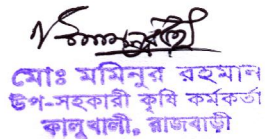 মোঃ মমিনুর রহমান
উপ-সহকারী কৃষি কর্মকর্তা
কালুখালী, রাজবাড়ী